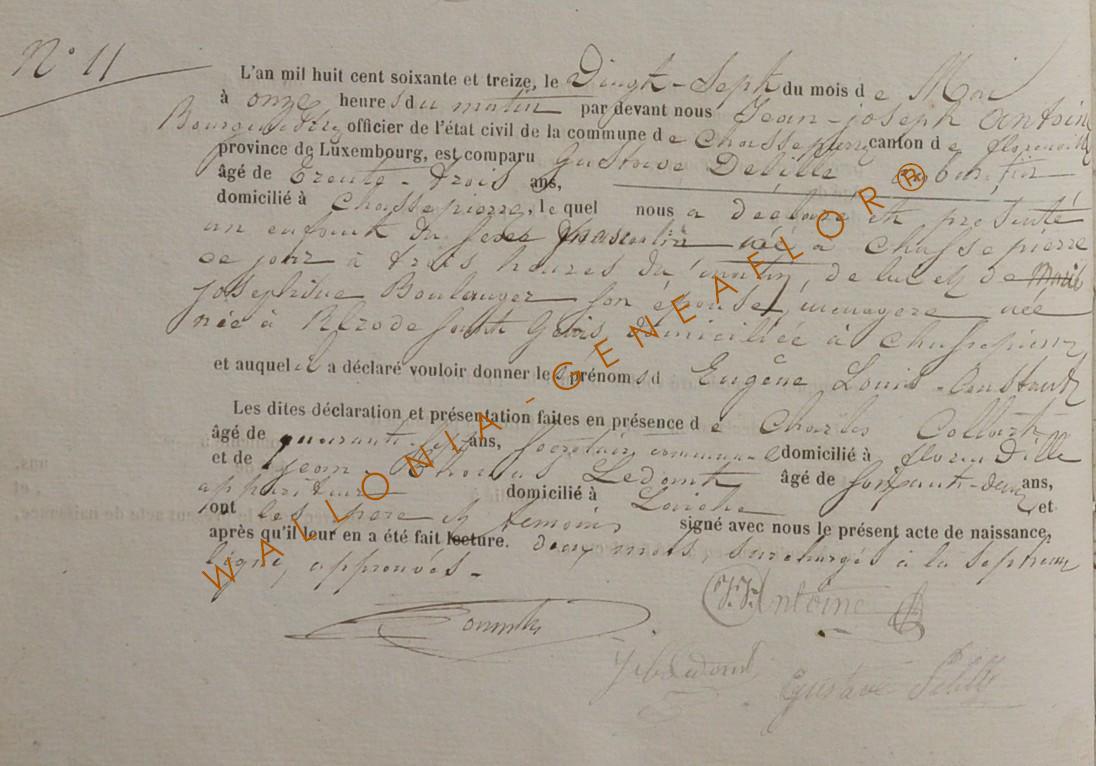 N° 11
L'an mil huit cent soixante et treize, le Vingt-Sept du mois de Mai
à onze heures du matin par devant nous Jean-joseph Antoine
Bourgmestre officier de l'état civil de la commune de Chassepierre canton de florenville
province de Luxembourg, est comparu Gustave Delille
âgé de trente-trois ans,
domicilié à Chassepierre, lequel nous a déclaré et présenté
un enfant du sexe masculin né à Chassepierre
ce jour à trois heures du matin, de lui et de Marie
josephine Boulanger son épouse, ménagère née
née à domiciliée à Chassepierre,
et auquel il a déclaré vouloir donner les prénoms d Eugène Louis-Constant
Les dites déclaration et présentation faites en présence de Charles Collart
âgé de quarante- ans, Secrétaire communal domicilié à florenville
et de jean Thomas Ledent âgé de soixante-deux ans,
appariteur domicilié à Laiche et
ont les père et témoins signé avec nous le présent acte de naissance,
après qu'il leur en a été fait lecture. deux mots surchargés à la septième
ligne, approuvés.-
J.J. Antoine
Gustave Delille
WALLONIA-GENEAFLOR®